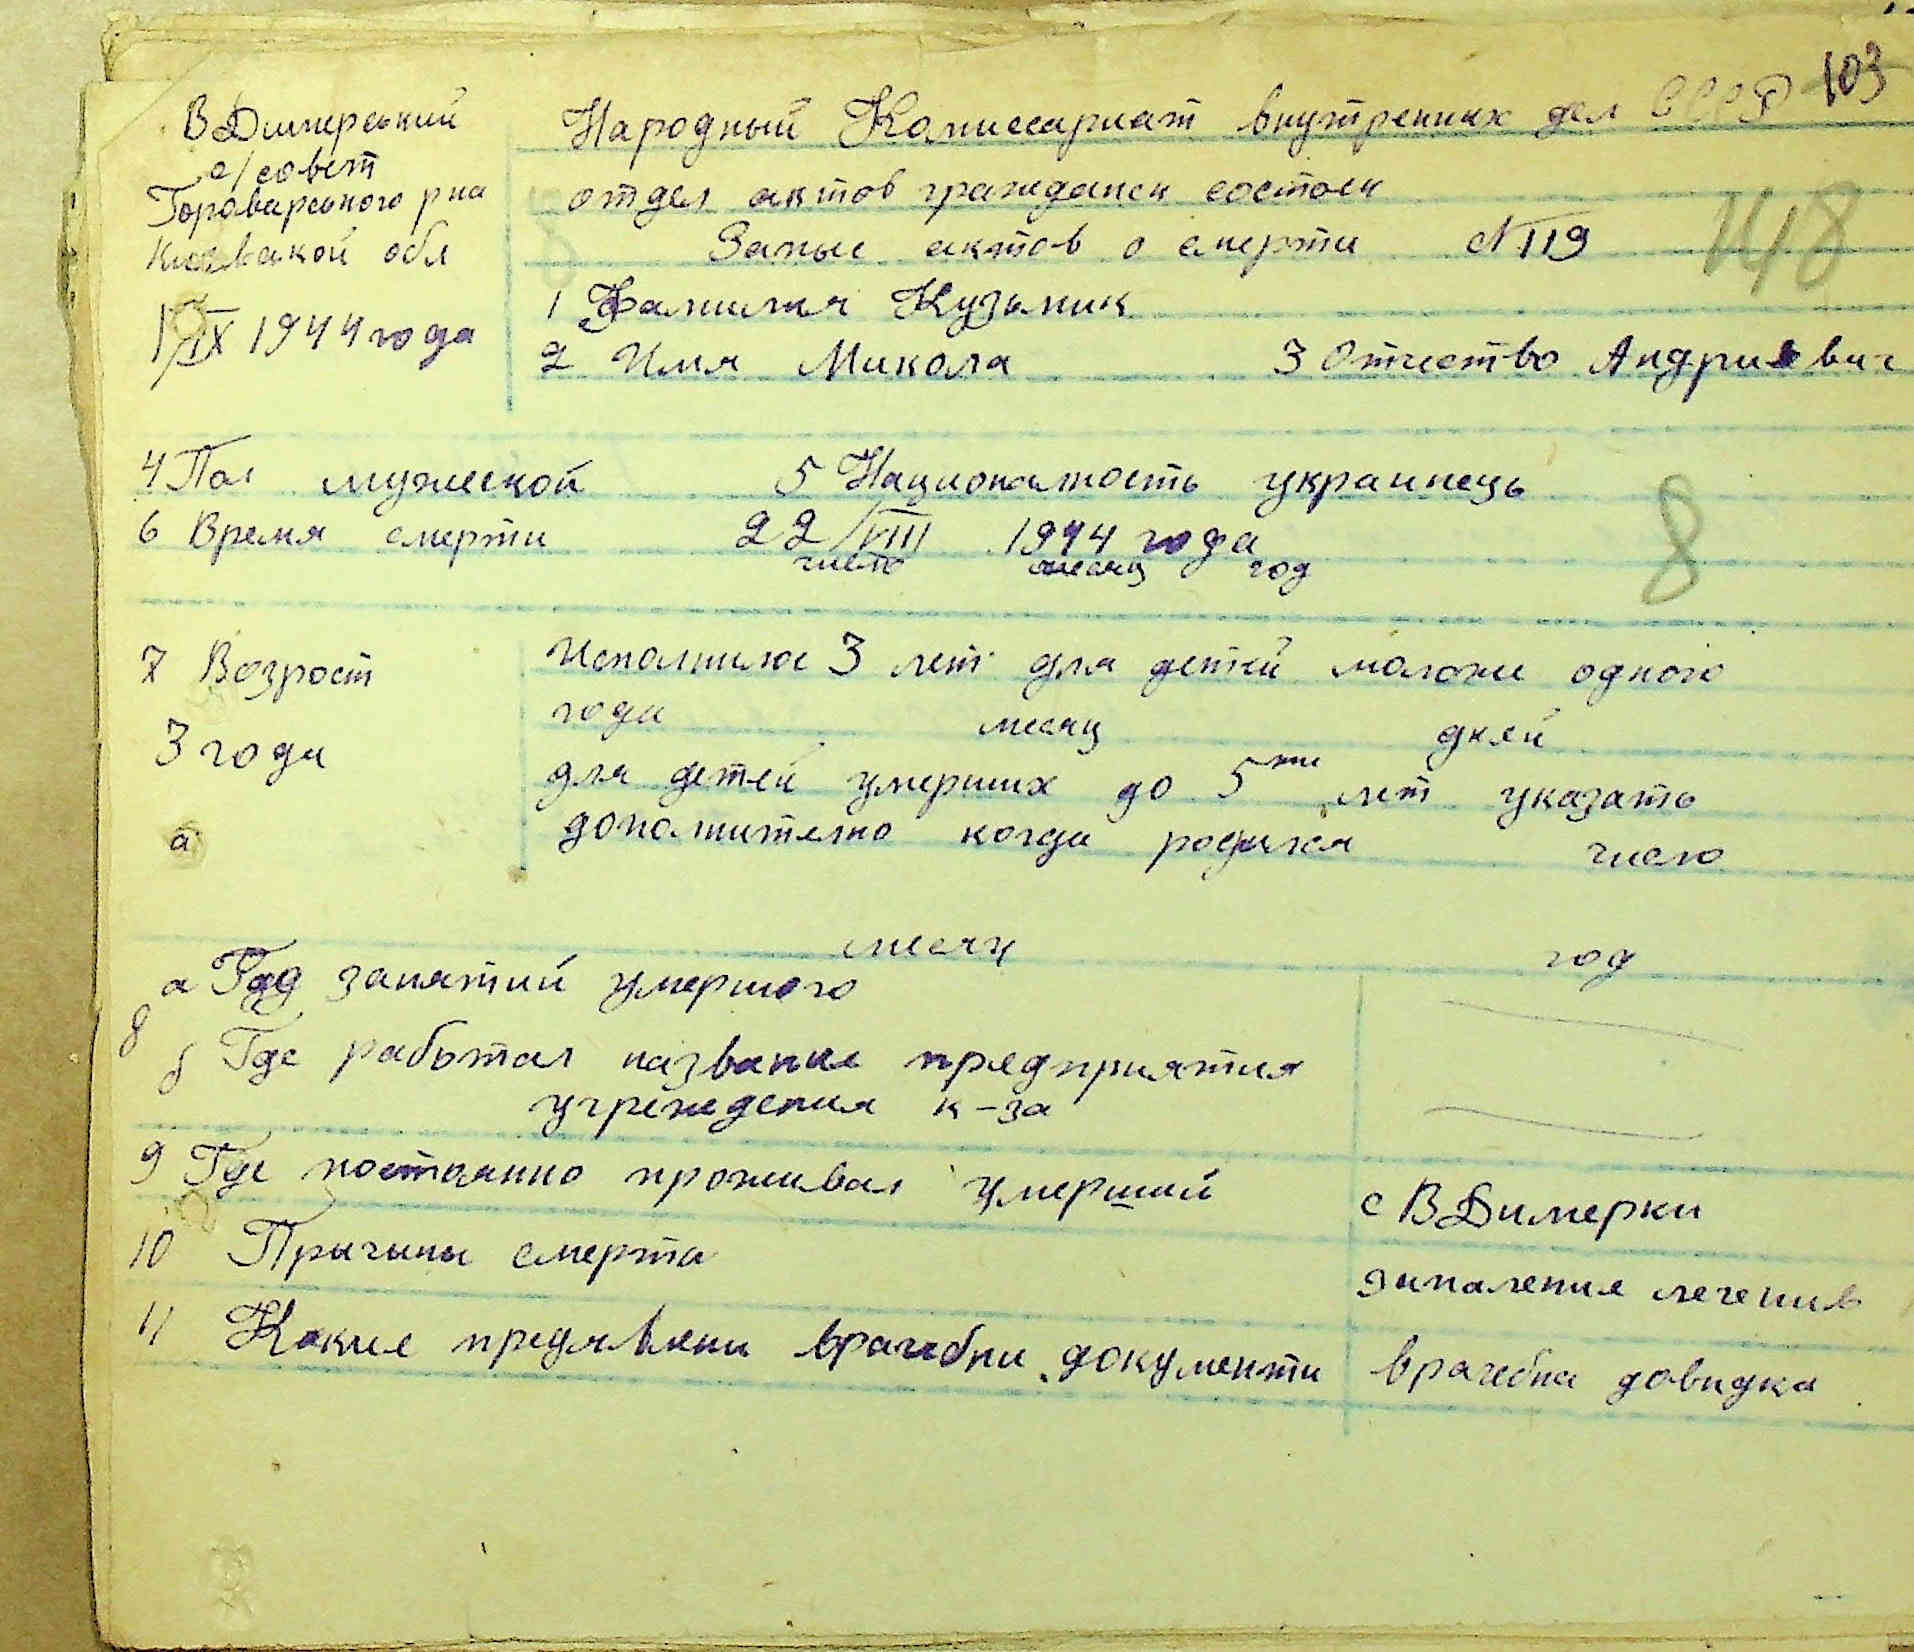 103
В Димерський
с/совет
Гоголевського р на
Киевской обл
1/IX 1944 года
Народный Комиссариат внутренних дел СССР
отдел актов гражданск состоен
Запыс актов о смерти №119
148
1 Фамилия Кузьмик
2 Имя Микола 3 Отчество Андриевич
4 Пол мужеской 5 Националность украинець
6 Время смерти 22/VIII 1944 года
число месяц год
8
7 Возрост
3 года
а
Исполнилос 3 лет для детей моложе одного
года месяц дней
для детей умерших до 5ти лет указать
дополнително когда родился число
месяц год
а Год занятий умершого
8
б Где работал название предприятия
учреждения к-за
9 Где постоянно проживал умерший с В Димерки
10 Причины смерти запаления легенив
11 Какие предявлени врачебни документи врачебна довидка